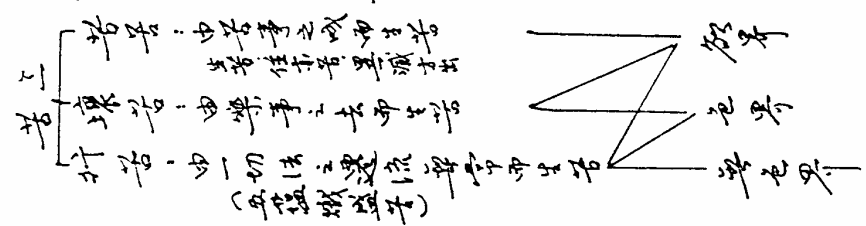 三苦
苦苦：由苦事之成而生苦
生苦 住亦苦 異滅
壞苦：由樂事之去而生苦
行苦：由一切法之遷流無常而生苦
（五蘊熾盛苦）
欲界
色界
無色界